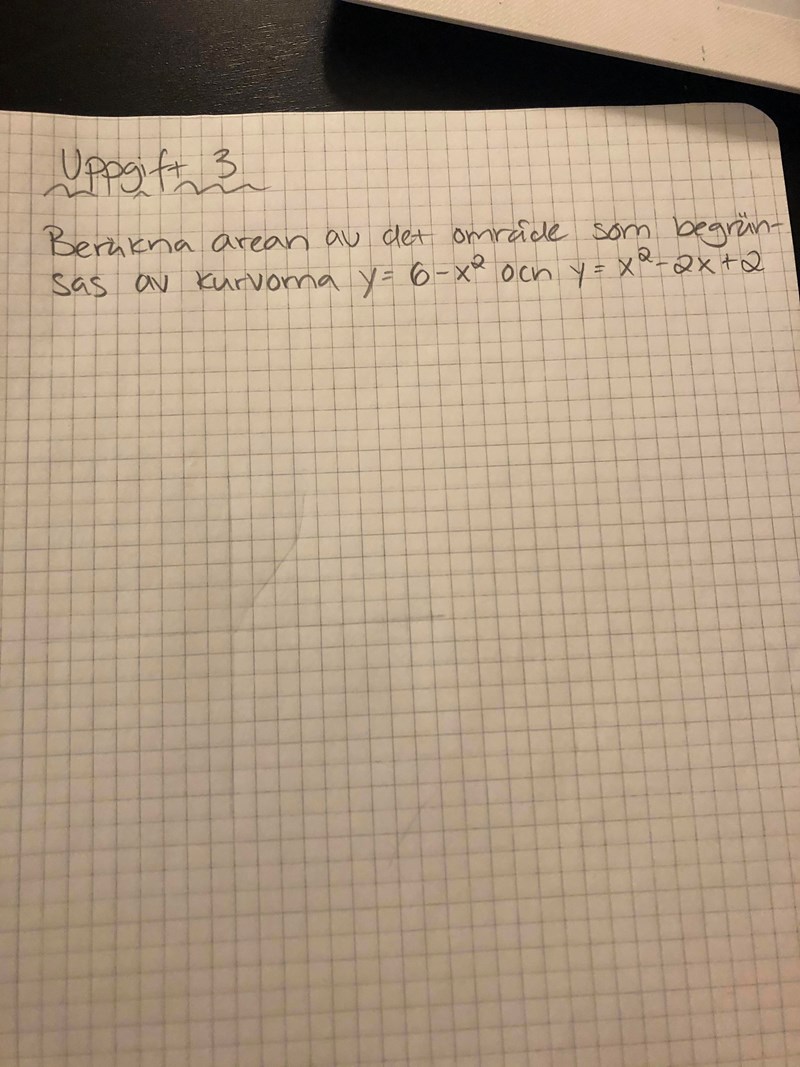 Uppgift 3
Beräkna arean av det område som begrän-
sas av kurvorna y = 6-x² och y = x²-2x+2